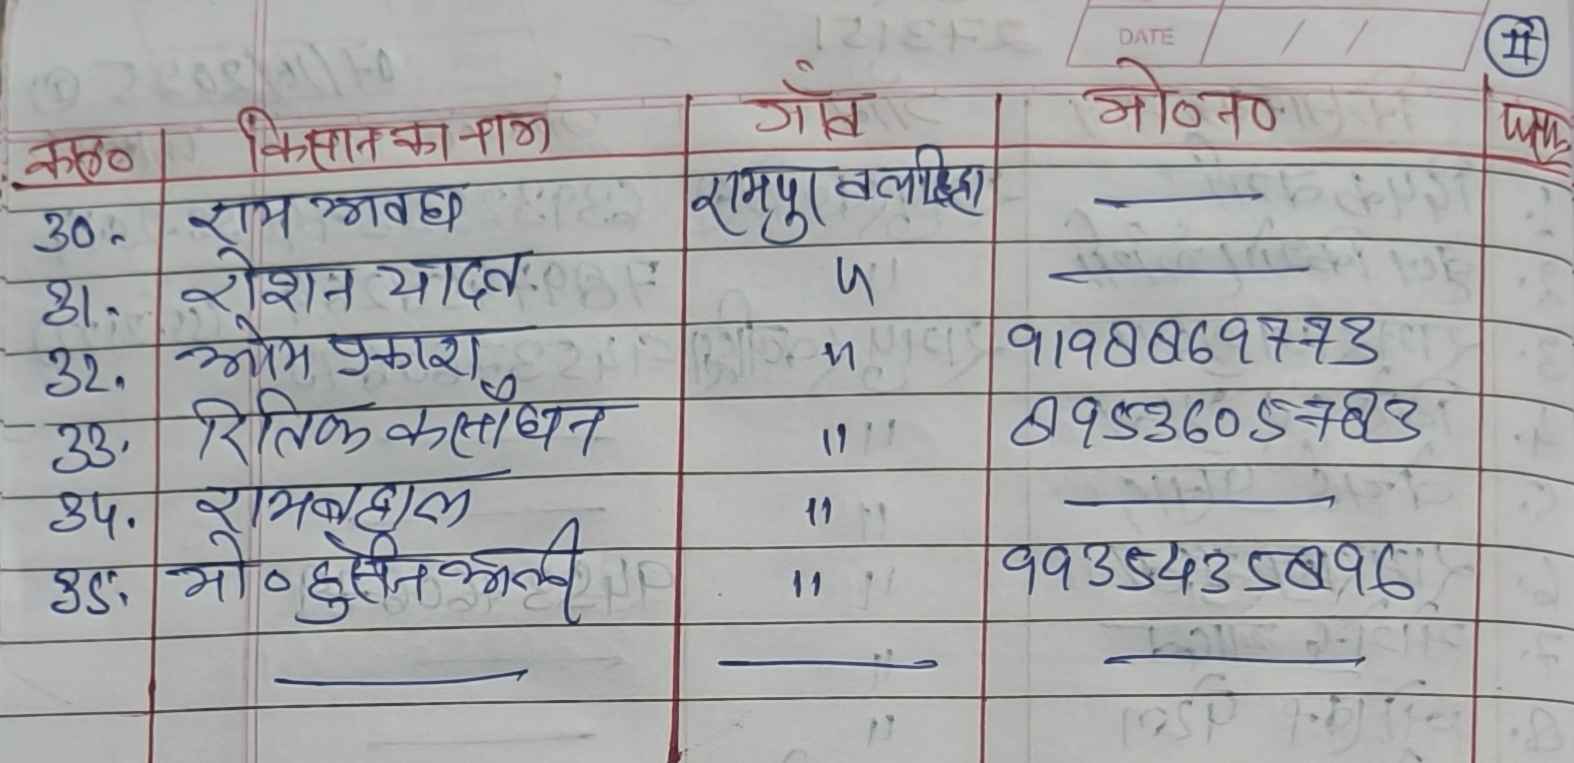 DATE / / II
क्र०सं० किसान का नाम गाँव मो०न०
30. राम अवध रामपुर बलडिहा ——
31. रोशन यादव " ——
32. ओम प्रकाश " 9198869773
33. रितिक कसौधन " 8953605783
34. रामबहाल " ——
35. मो० हुसैन अली " 9935435896
—— —— ——